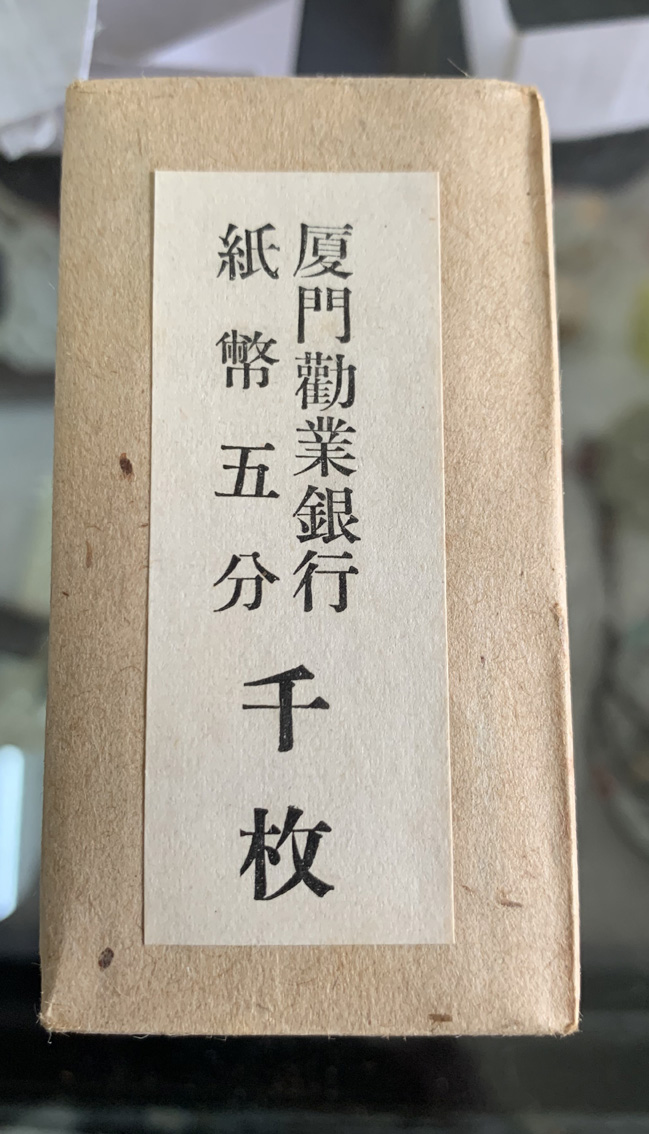 厦門勸業銀行
紙幣五分
千枚